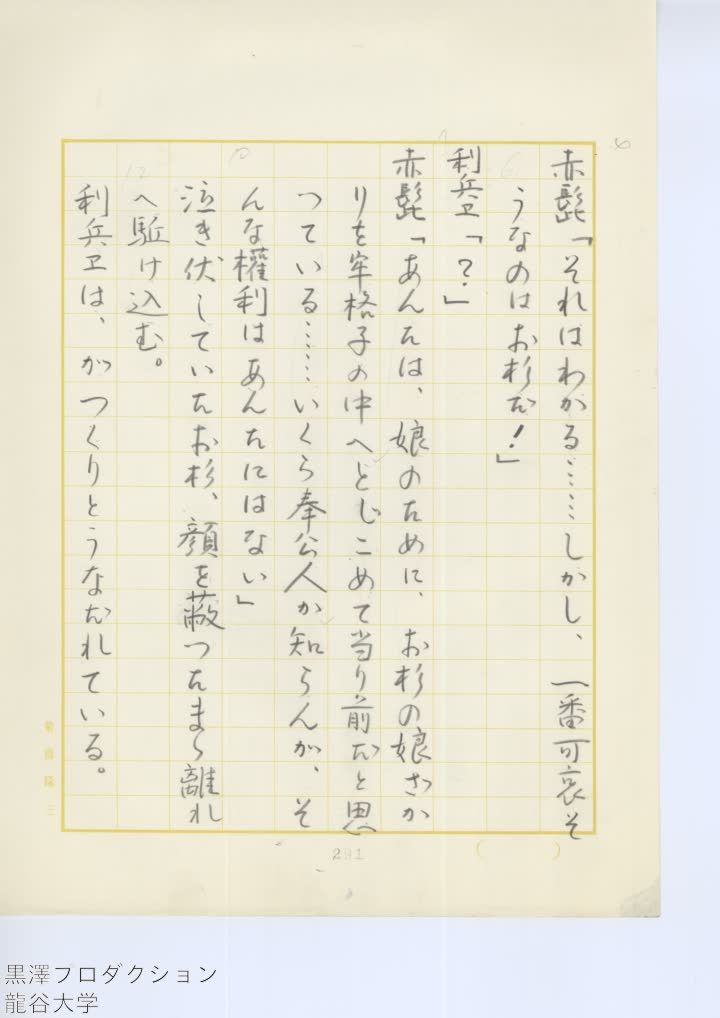 赤髭「それはわかる……しかし、一番可哀そ
うなのはお杉だ！」
利兵ヱ「？」
赤髭「あんたは、娘のために、お杉の娘ざか
りを牢格子の中へとじこめて当り前だと思
つている……いくら奉公人か知らんが、そ
んな權利はあんたにはない」
泣き伏していたお杉、顔を蔽つたまゝ離れ
へ駈け込む。
利兵ヱは、がつくりとうなだれている。
291
黒澤プロダクション
龍谷大学